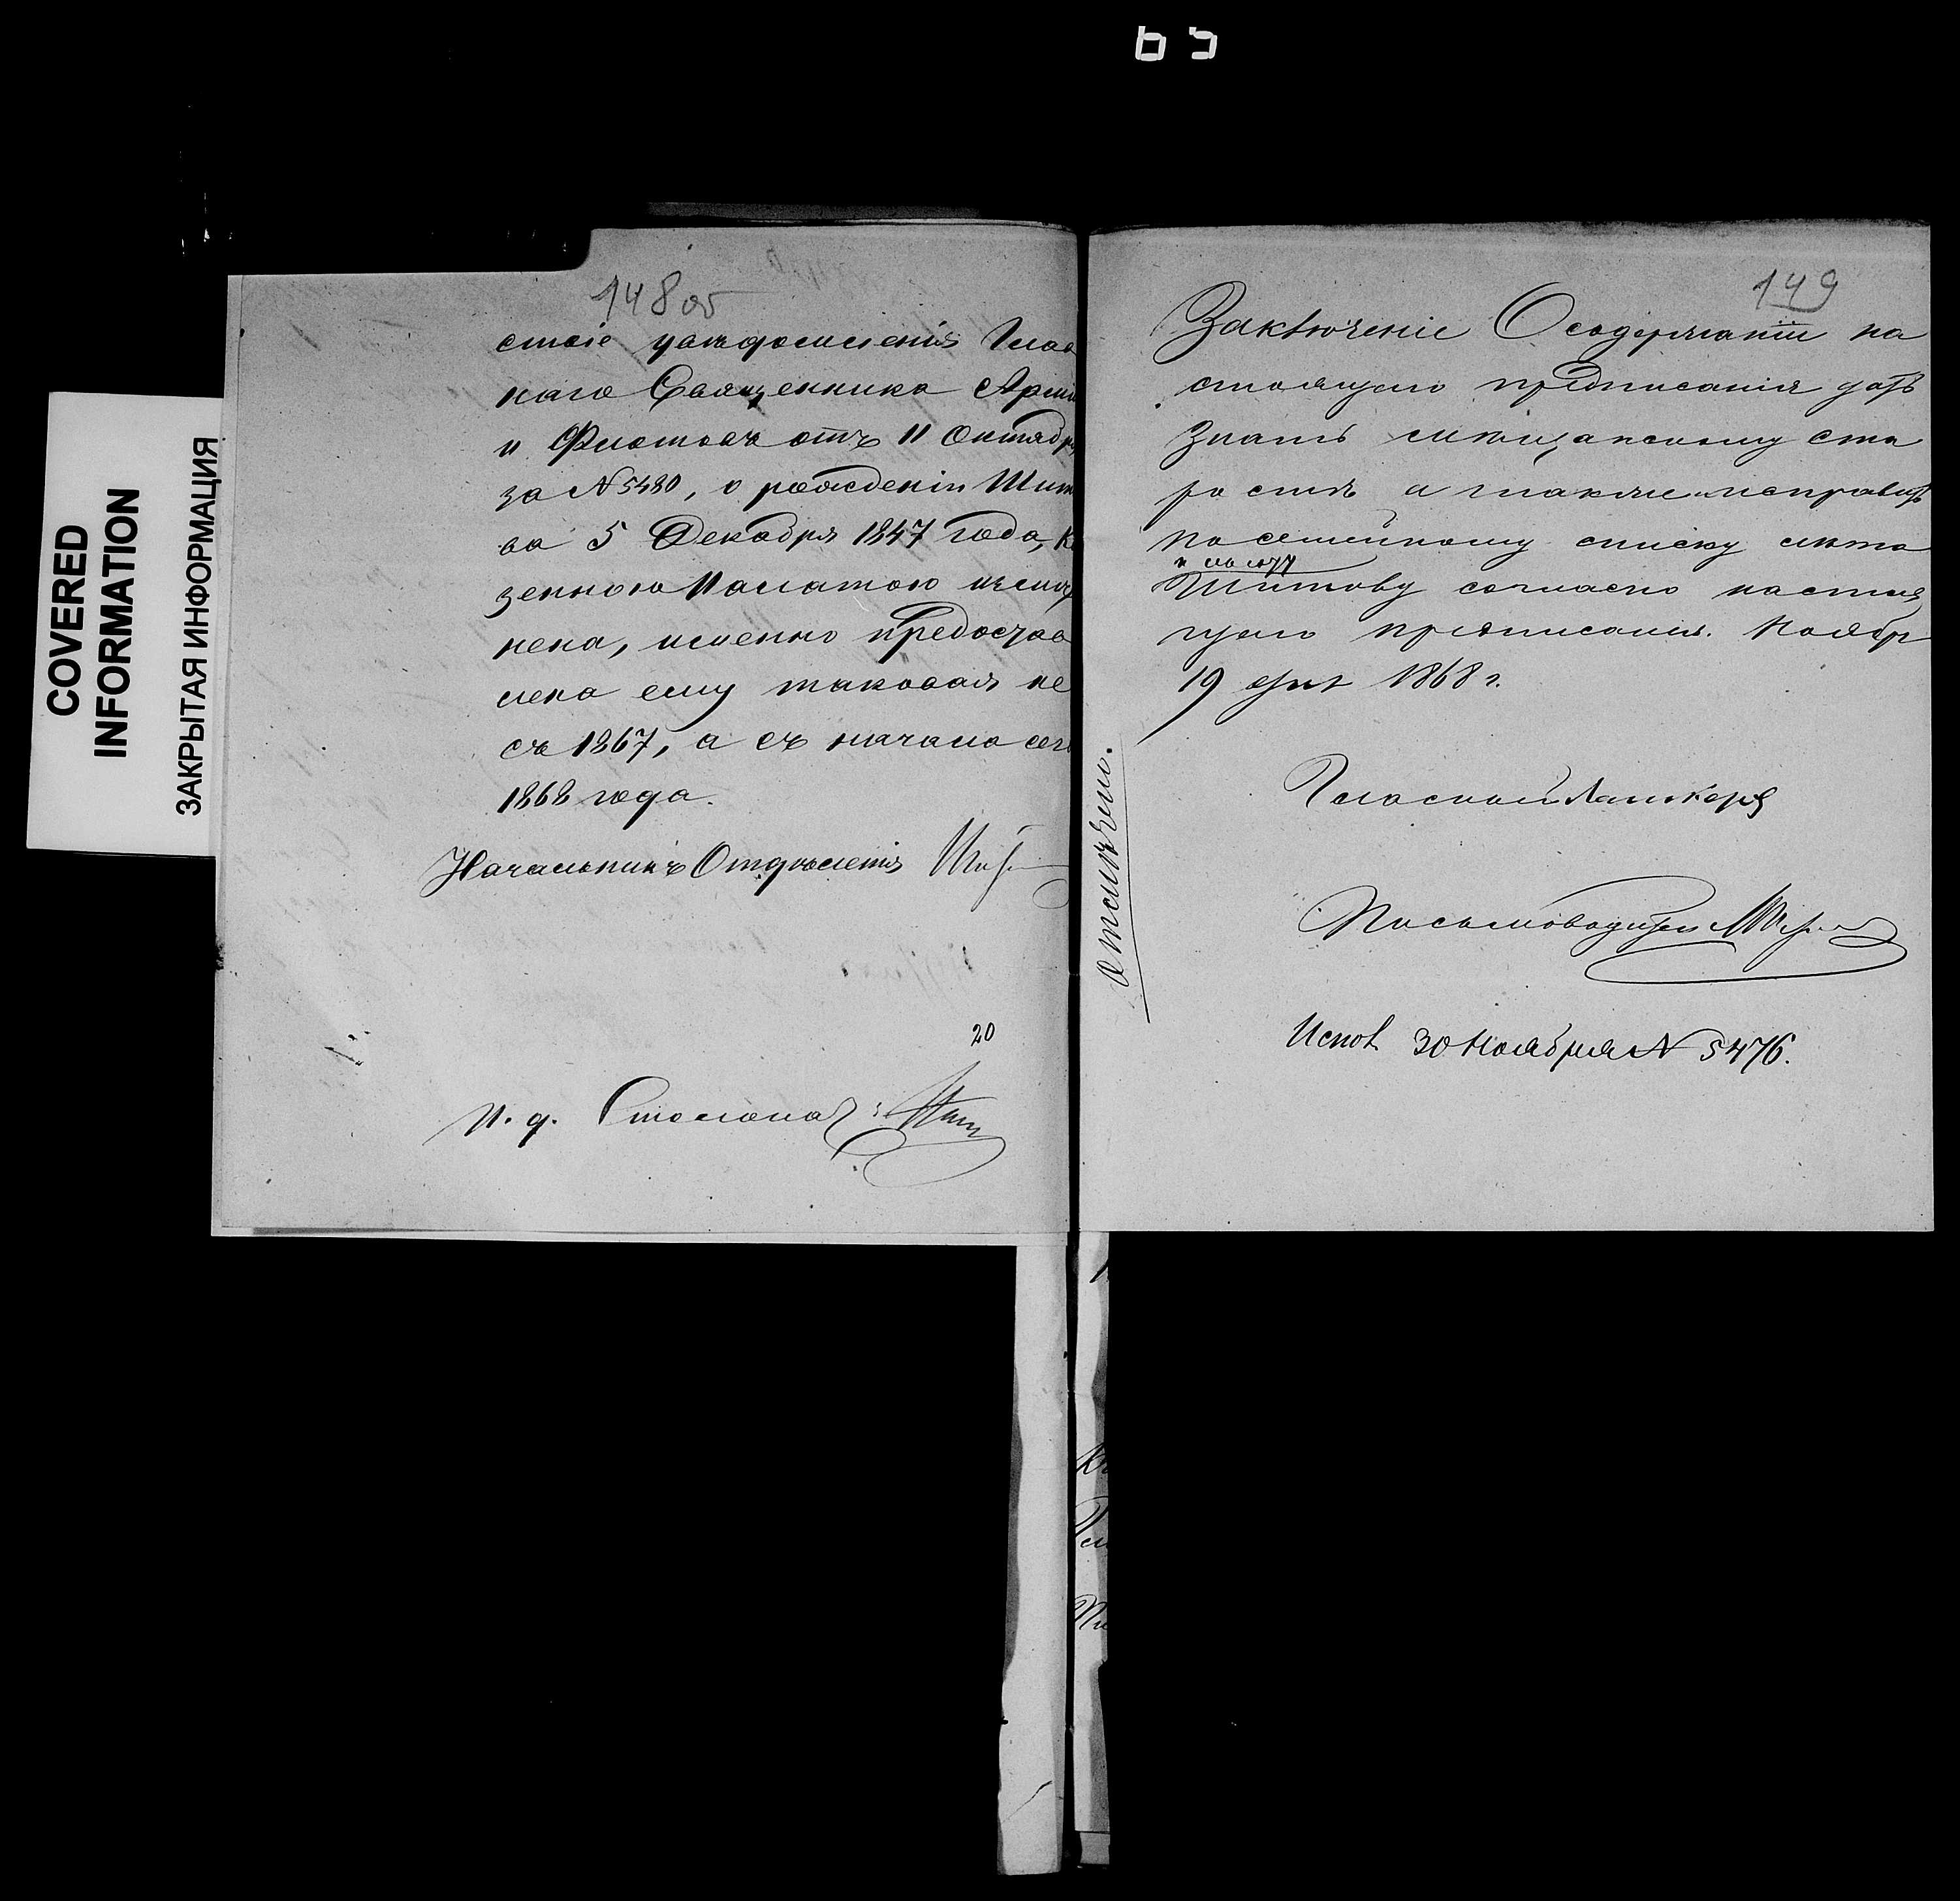 COVERED
INFORMATION
ЗАКРЫТАЯ ИНФОРМАЦИЯ
148 об
ствіе увѣдомленія Глав
наго Священника Арміи
и Флотовъ отъ 11 Октября
за N 5480, о рожденіи Шит
ва 5 Декабря 1847 года, Ка
зенною Палатою
нена, именно предостав
лена ему таковая не
съ 1867, а съ начала сего
1868 года.
Начальникъ Отдѣленія
20
И. д. Столонач
149
Заключеніе О содержаніи на
стоящаго предписанія дать
знать мѣщанскому ста
ростѣ а также исправить
по семейному списку лѣта
Шитову согласно настоя
щаго предписанія. Ноябр
19 дня 1868 г.
Гласный
Письмоводитель
Испол 30 Ноября N 5476.
Отмѣчено.